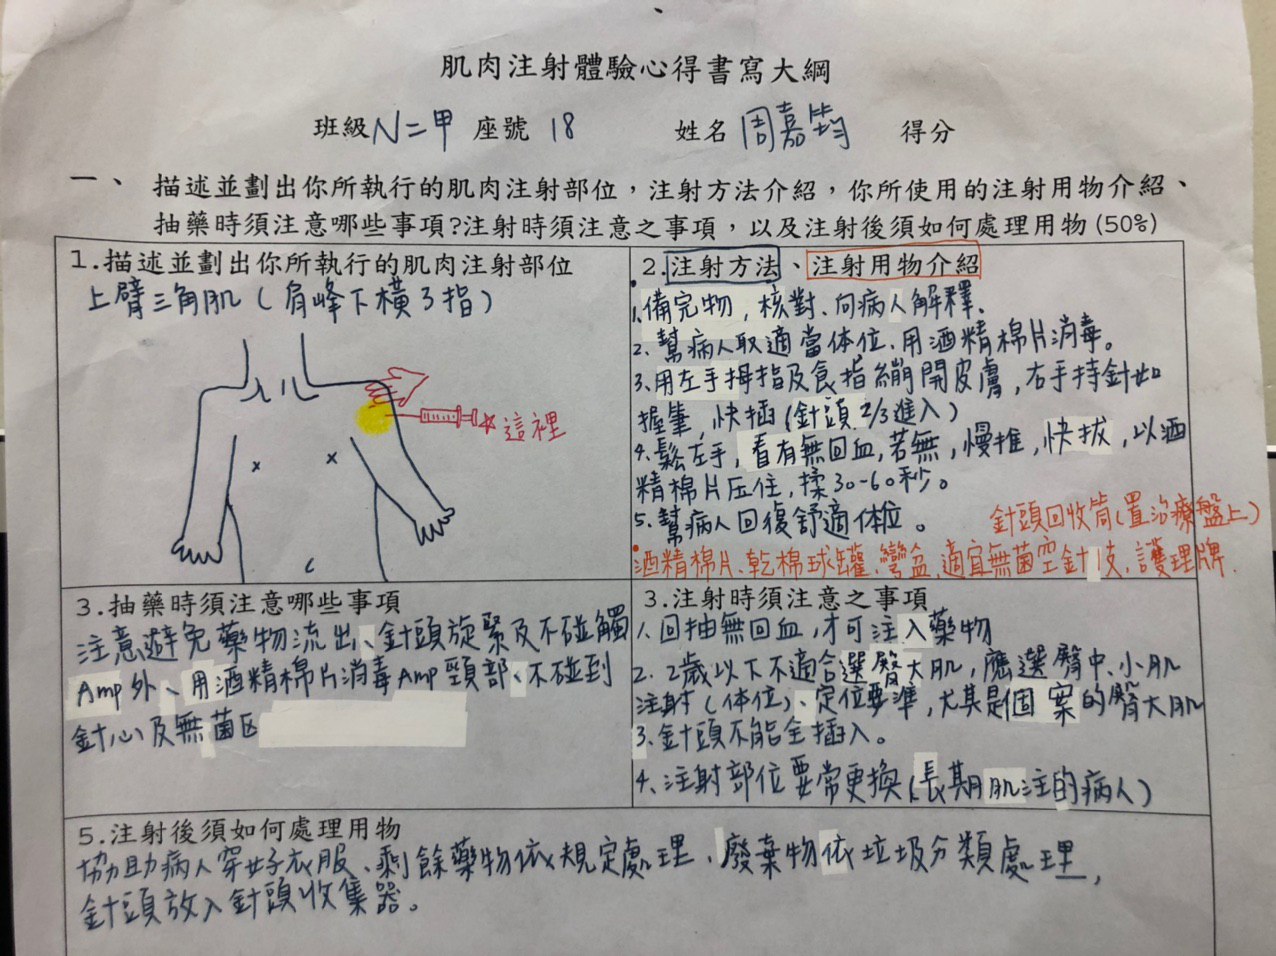 肌肉注射體驗心得書寫大綱
班級N二甲 座號 18 姓名 周嘉筠 得分
一、 描述並劃出你所執行的肌肉注射部位，注射方法介紹，你所使用的注射用物介紹、
抽藥時須注意哪些事項?注射時須注意之事項，以及注射後須如何處理用物(50%)
1.描述並劃出你所執行的肌肉注射部位
上臂三角肌(肩峰下橫3指)
這裡
2.注射方法、注射用物介紹
1.備完物,核對、向病人解釋.
2.幫病人取適當体位、用酒精棉片消毒。
3.用左手拇指及食指繃開皮膚,右手持針如
握筆,快插(針頭2/3進入)
4.鬆左手,看有無回血,若無,慢推,快拔,以酒
精棉片压住,揉30-60秒。
5.幫病人回復舒適体位。
針頭回收筒(置治療盤上)
酒精棉片、乾棉球罐、彎盆、適宜無菌空針1支、護理牌.
3.抽藥時須注意哪些事項
注意避免藥物流出、針頭旋緊及不碰觸
Amp外、用酒精棉片消毒Amp頸部、不碰到
針心及無菌区
3.注射時須注意之事項
1.回抽無回血,才可注入藥物
2.2歲以下不適合選臀大肌,應選臀中、小肌
注射(体位)、定位要準,尤其是個案的臀大肌
3.針頭不能全插入。
4.注射部位要常更換(長期肌注的病人)
5.注射後須如何處理用物
協助病人穿好衣服、剩餘藥物依規定處理、廢棄物依垃圾分類處理,
針頭放入針頭收集器。